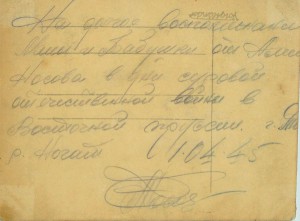 На долгое воспоминание
Маши и Бабушки от
Носова в дни суровой
отечественной войны в
Восточной пруссии. г.
р. 1.04.45